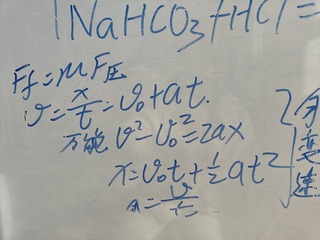 NaHCO₃+HCl=
Ff=μF压
v=x/t=v₀+at.
万能 v²-v₀²=2ax
x=v₀t+½at²
匀变速